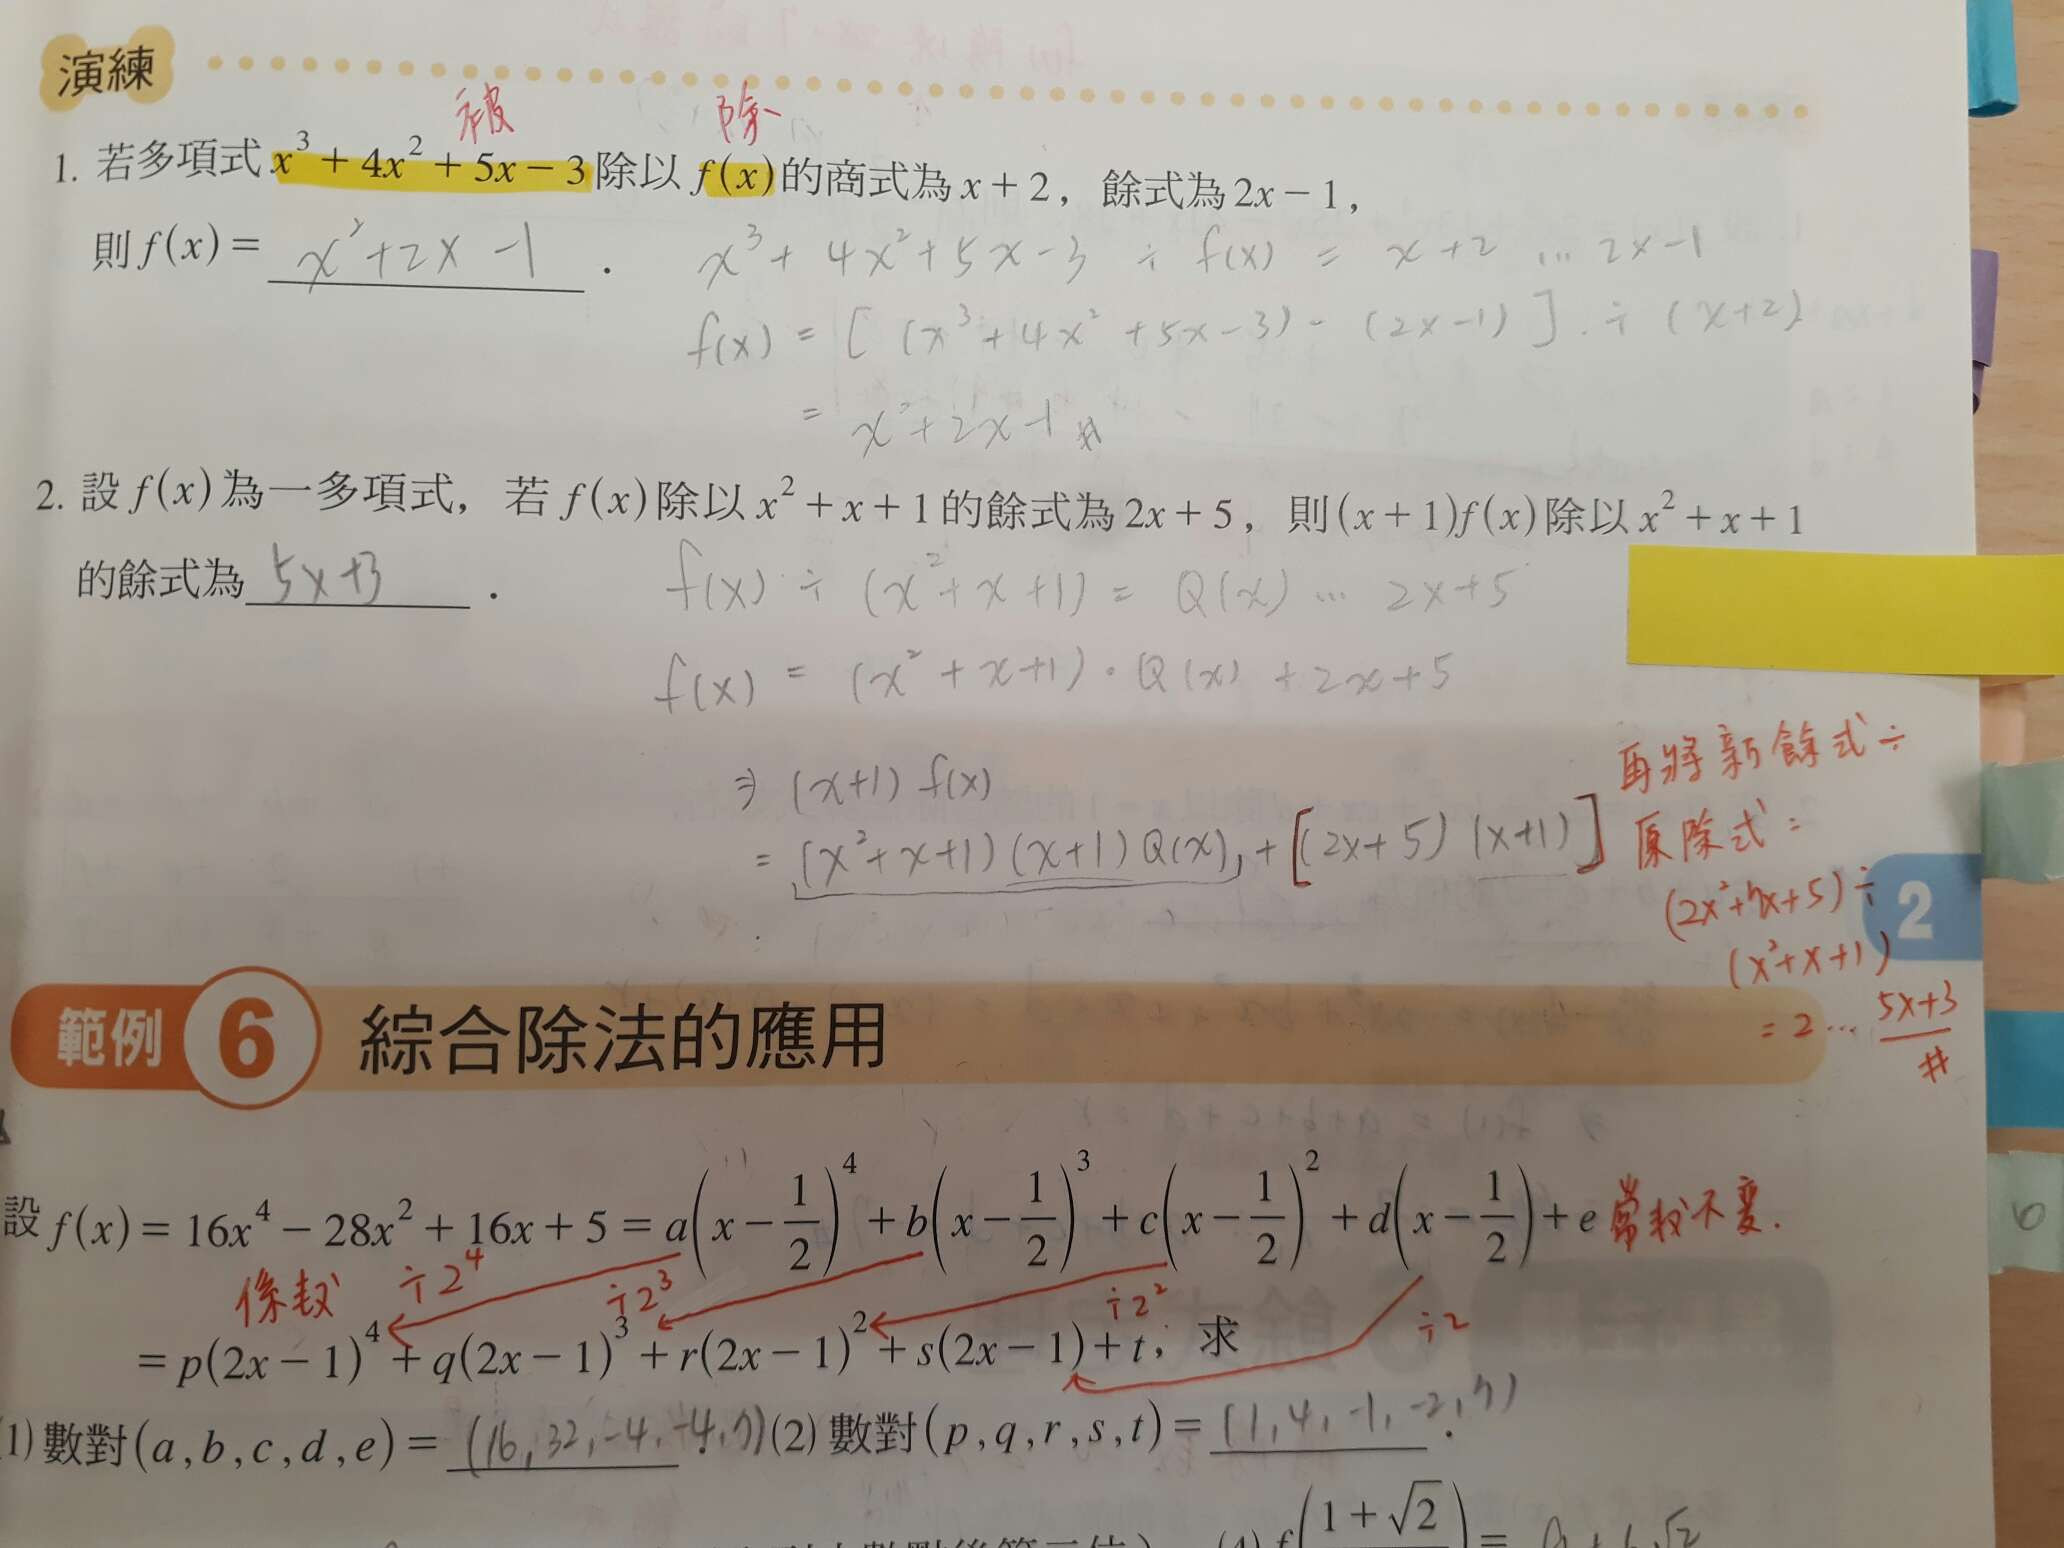 演練
被 除
1. 若多項式 x³ + 4x² + 5x − 3 除以 f(x) 的商式為 x + 2，餘式為 2x − 1，
則 f(x) = x² + 2x − 1 .
x³ + 4x² + 5x − 3 ÷ f(x) = x + 2 … 2x − 1
f(x) = [ (x³ + 4x² + 5x − 3) − (2x − 1) ] ÷ (x + 2)
= x² + 2x − 1 #
2. 設 f(x) 為一多項式，若 f(x) 除以 x² + x + 1 的餘式為 2x + 5，則 (x + 1)f(x) 除以 x² + x + 1
的餘式為 5x + 3 .
f(x) ÷ (x² + x + 1) = Q(x) … 2x + 5
f(x) = (x² + x + 1) · Q(x) + 2x + 5
⇒ (x + 1) f(x)
= (x² + x + 1) (x + 1) Q(x) + [(2x + 5) (x + 1)]
再將新餘式 ÷
原除式 =
(2x² + 7x + 5) ÷
(x² + x + 1)
= 2 … 5x + 3
#
2
範例 6 綜合除法的應用
設 f(x) = 16x⁴ − 28x² + 16x + 5 = a(x − 1/2)⁴ + b(x − 1/2)³ + c(x − 1/2)² + d(x − 1/2) + e 常数不変.
係数 ÷2⁴ ÷2³ ÷2² ÷2
= p(2x − 1)⁴ + q(2x − 1)³ + r(2x − 1)² + s(2x − 1) + t，求
(1) 數對 (a , b , c , d , e) = (16, 32, -4, -4, 7) (2) 數對 (p , q , r , s , t) = (1, 4, -1, -2, 7) .
6
(4) f(1 + √2